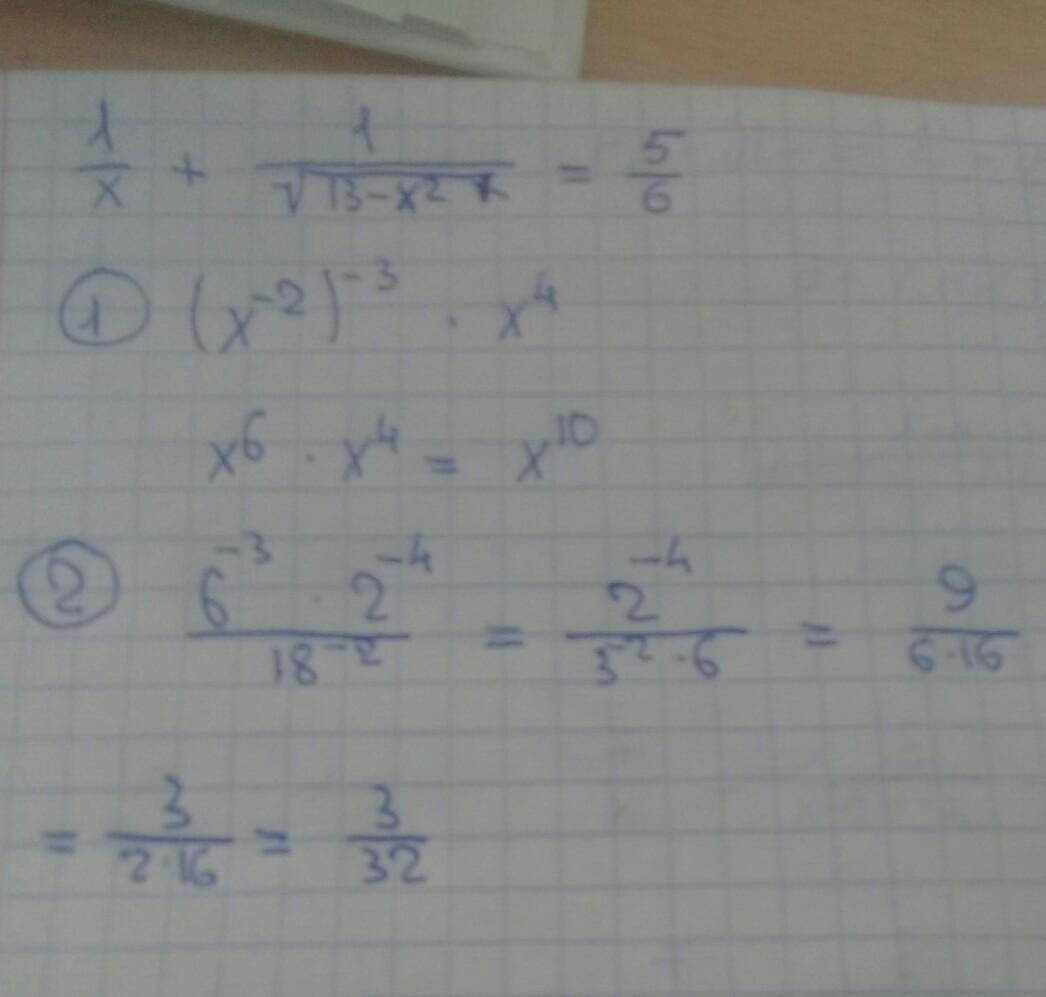 1/x + 1/√(13-x²) = 5/6
① (x⁻²)⁻³ · x⁴
x⁶ · x⁴ = x¹⁰
② (6⁻³ · 2⁻⁴)/18⁻² = 2⁻⁴/(3⁻² · 6) = 9/(6·16)
= 3/(2·16) = 3/32